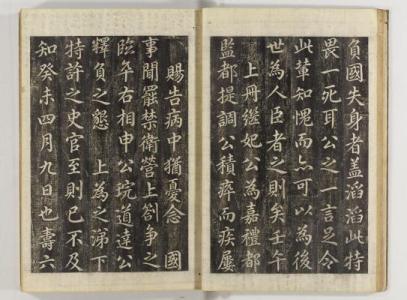 負國失身者盖滔滔此特
畏一死耳公之一言足令
此輩知愧而亦可以為後
世為人臣者之則矣壬午
上冊繼妃公為嘉禮都
監都提調公積瘁而疾屢
賜告病中猶憂念 國
事聞罷禁衛營上劄爭之
臨卒右相申公琓道達公
釋負之懇 上為之涕下
特許之史官至則已不及
知癸未四月九日也壽六